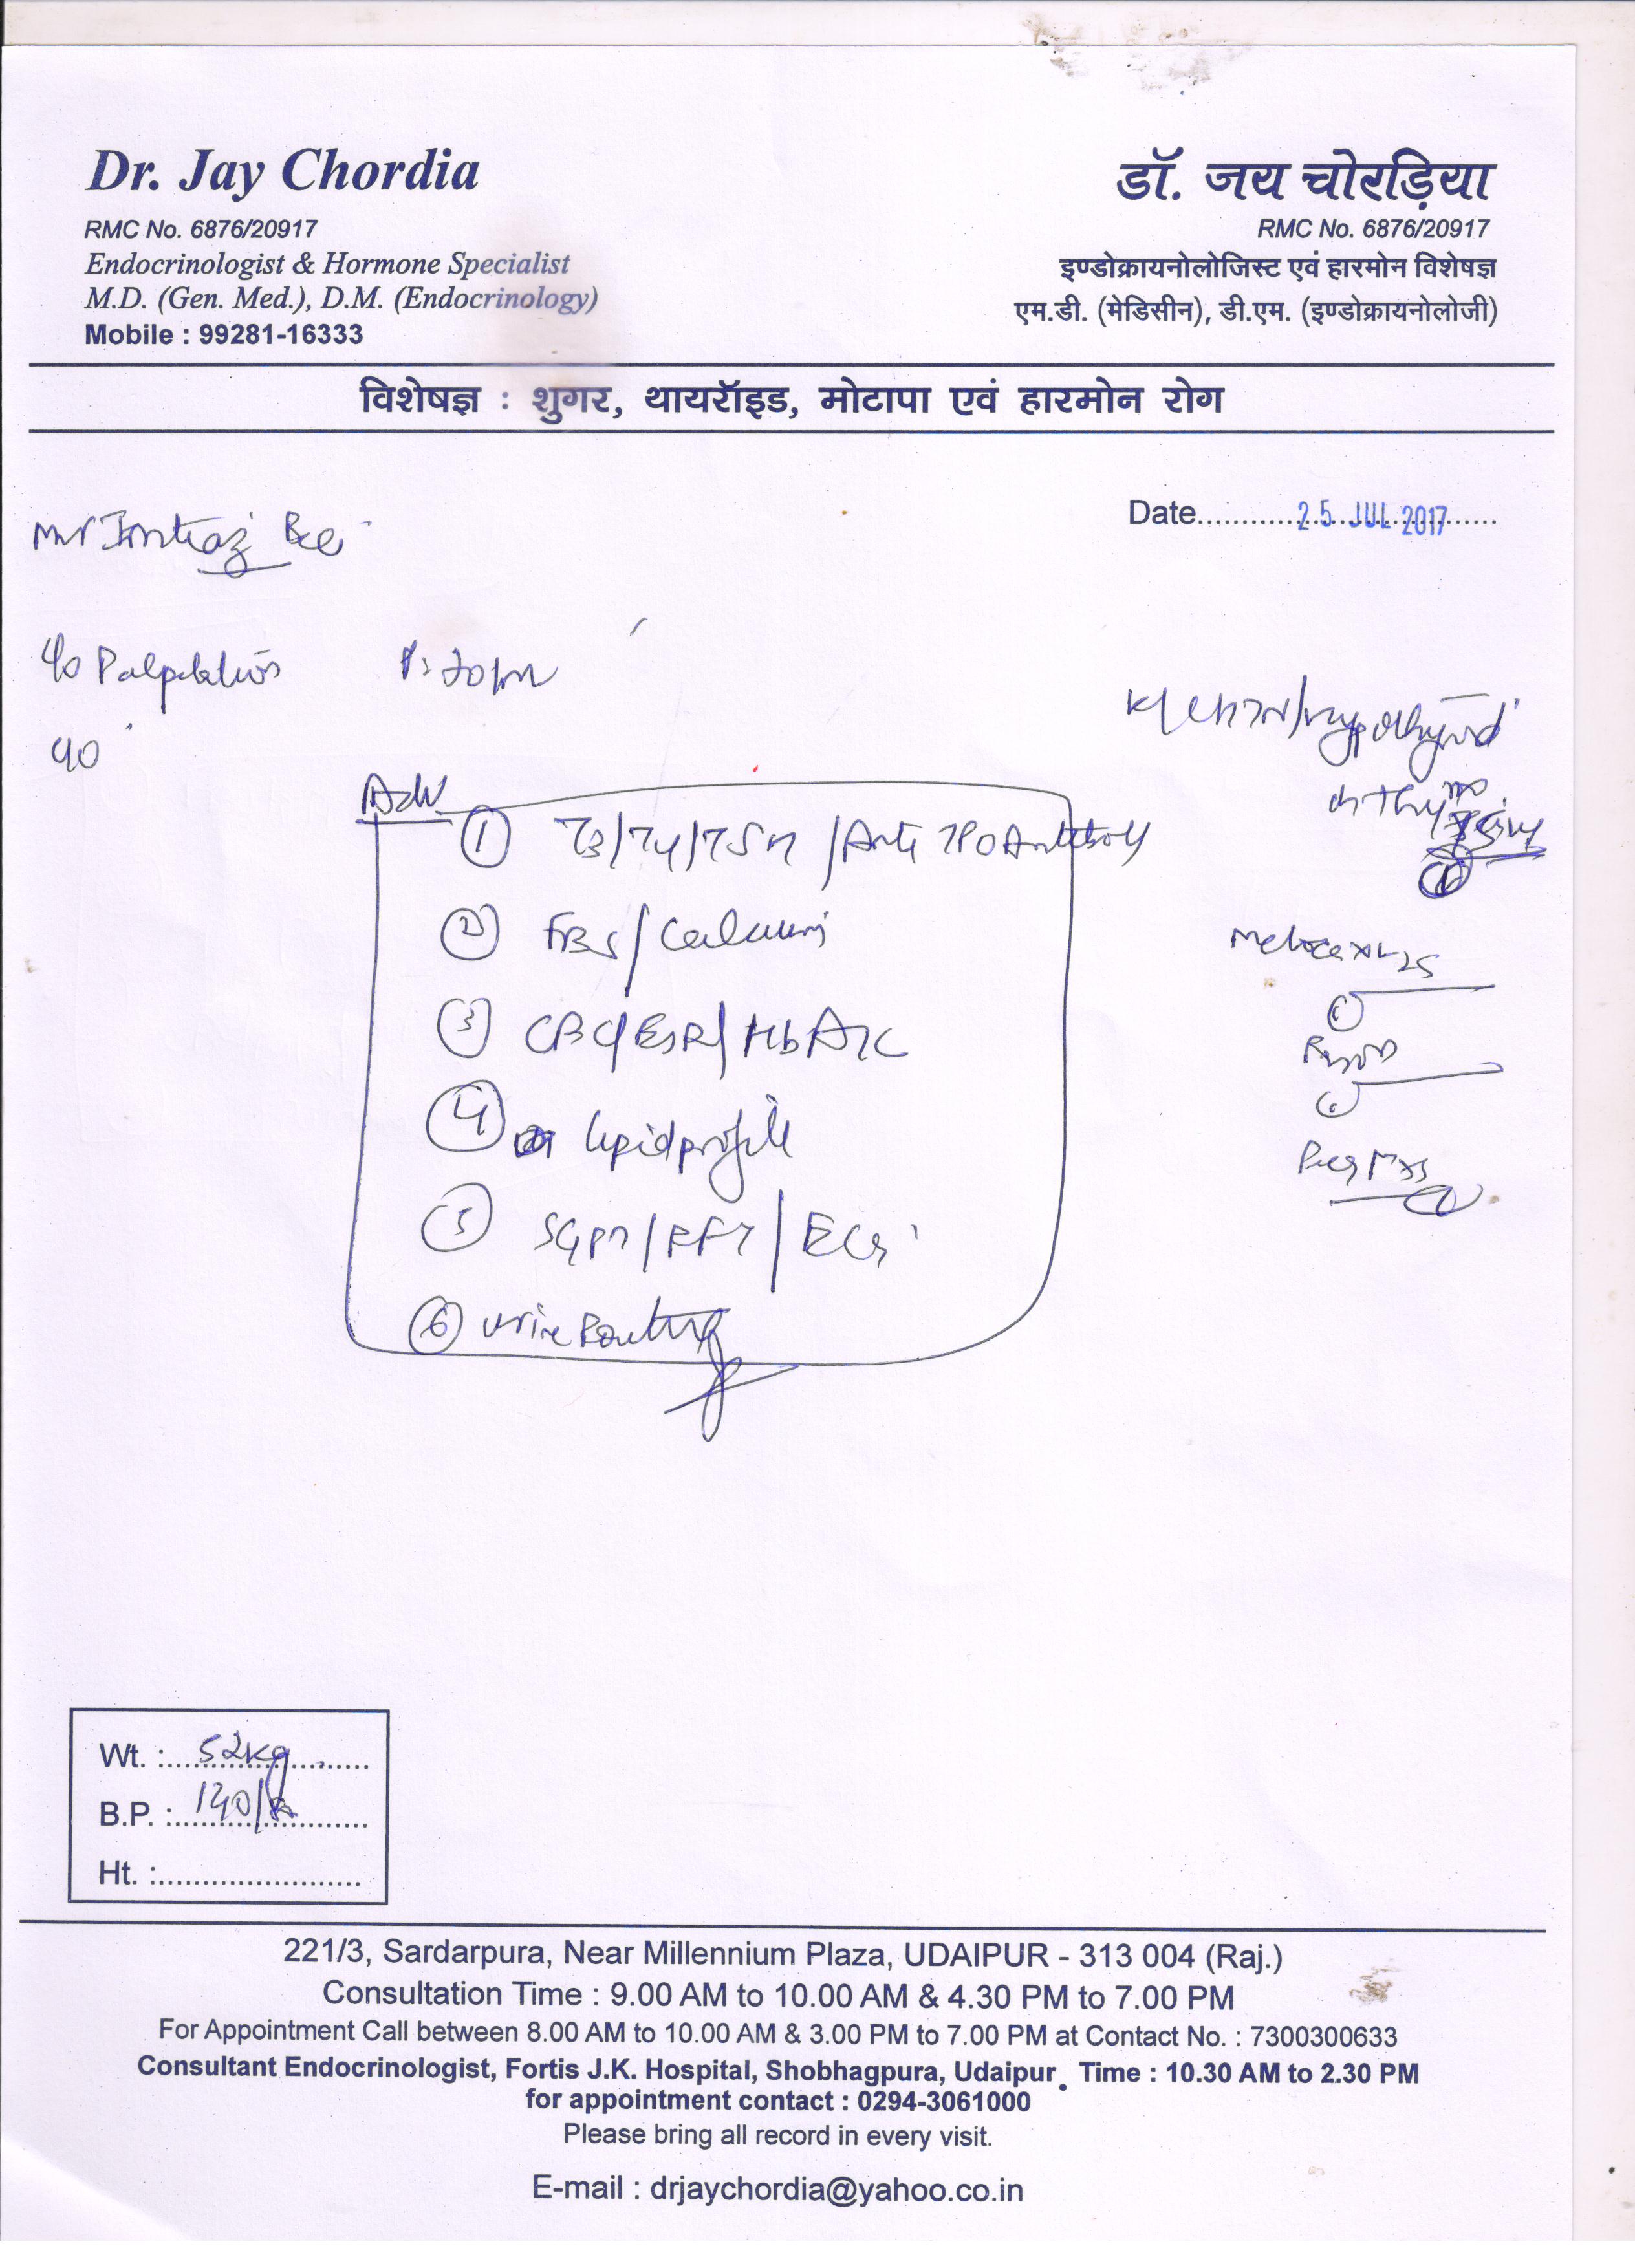 Dr. Jay Chordia
RMC No. 6876/20917
Endocrinologist & Hormone Specialist
M.D. (Gen. Med.), D.M. (Endocrinology)
Mobile : 99281-16333
डॉ. जय चोरड़िया
RMC No. 6876/20917
इण्डोक्रायनोलोजिस्ट एवं हारमोन विशेषज्ञ
एम.डी. (मेडिसीन), डी.एम. (इण्डोक्रायनोलोजी)
विशेषज्ञ : शुगर, थायरॉइड, मोटापा एवं हारमोन रोग
Date 25 JUL 2017
Imtiaz
Palpitation
Adv
① T3/T4/TSH /Anti TPO Antibody
② FBS/Calcium
③ CBC/ESR/HbA1C
④ lipid profile
⑤ SGPT/RFT/ECG
⑥ urine Routine
Wt. : 52kg
B.P. :
Ht. :
221/3, Sardarpura, Near Millennium Plaza, UDAIPUR - 313 004 (Raj.)
Consultation Time : 9.00 AM to 10.00 AM & 4.30 PM to 7.00 PM
For Appointment Call between 8.00 AM to 10.00 AM & 3.00 PM to 7.00 PM at Contact No. : 7300300633
Consultant Endocrinologist, Fortis J.K. Hospital, Shobhagpura, Udaipur. Time : 10.30 AM to 2.30 PM
for appointment contact : 0294-3061000
Please bring all record in every visit.
E-mail : drjaychordia@yahoo.co.in